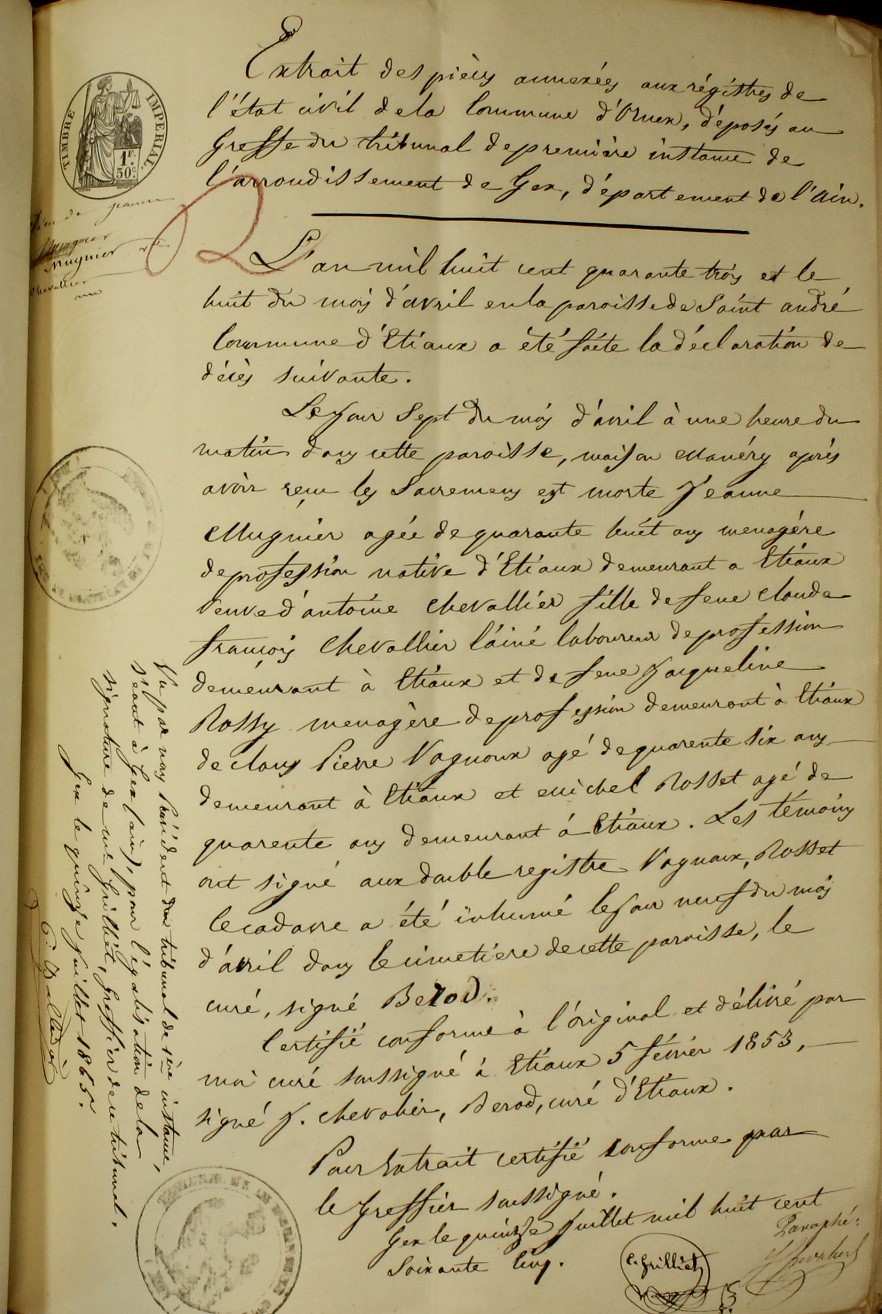 Extrait des pièces annexées aux régistres de
l'état civil de la Commune d'Ornex, déposés au
Greffe du tribunal de première instance de
l'arrondissement de Gex, département de l'ain.
TIMBRE IMPERIAL
1F.
50c
Mugnier
Chevallier
L'an mil huit cent quarante trois et le
huit du mois d'avril en la paroisse de Saint andré
Commune d'Etiaux a été faite la déclaration de
décès suivante.
Le jour Sept du mois d'avril à une heure du
matin dans cette paroisse, maison Manéry après
avoir reçu les Sacremens est morte Jeanne
Mugnier agée de quarante huit ans menagère
de profession native d'Etiaux demeurant a Etiaux
veuve d'antoine Chevallier fille de feue Claude
françois Chevallier l'ainé laboureur de profession
demeurant à Etiaux et de feue Jacqueline
Rossy menagère de profession demeurant à Etiaux
de clans Pierre Vagnoux agé de quarente six ans
demeurant à Etiaux et michel Rosset agé de
quarente ans demeurant á Etiaux. Les témoins
ont signé aux double registre Vagnoux, Rosset
le cadavre a été inhumé le jour neuf du mois
d'avril dans le cimetiere de cette paroisse, le
curé, signé Berod.
Certifié conforme à l'original et délivré par
moi curé soussigné à Etiaux 5 février 1853,
signé J. Chevalier, Berod, curé d'Etiaux.
Pour Extrait certifié conforme par
le Greffier soussigné.
Gex le quinze Juillet mil huit cent
Soixante Cinq.
C. Grilliet
Paraphé:
Vu par nous Président du tribunal de 1ère instance,
séant à Gex (ain), pour légalisation de la
signature de me Grilliet, Greffier de ce tribunal.
Gex le quinze Juillet 1865.